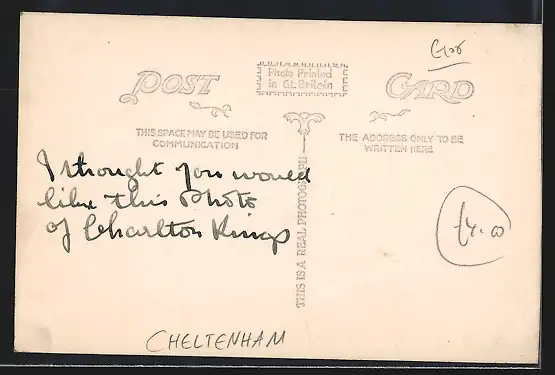 Glos
POST CARD
Photo Printed
in Gt. Britain
THIS SPACE MAY BE USED FOR
COMMUNICATION
THE ADDRESS ONLY TO BE
WRITTEN HERE
THIS IS A REAL PHOTOGRAPH
I thought you would
like this Photo
of Charlton Kings
£4.00
CHELTENHAM